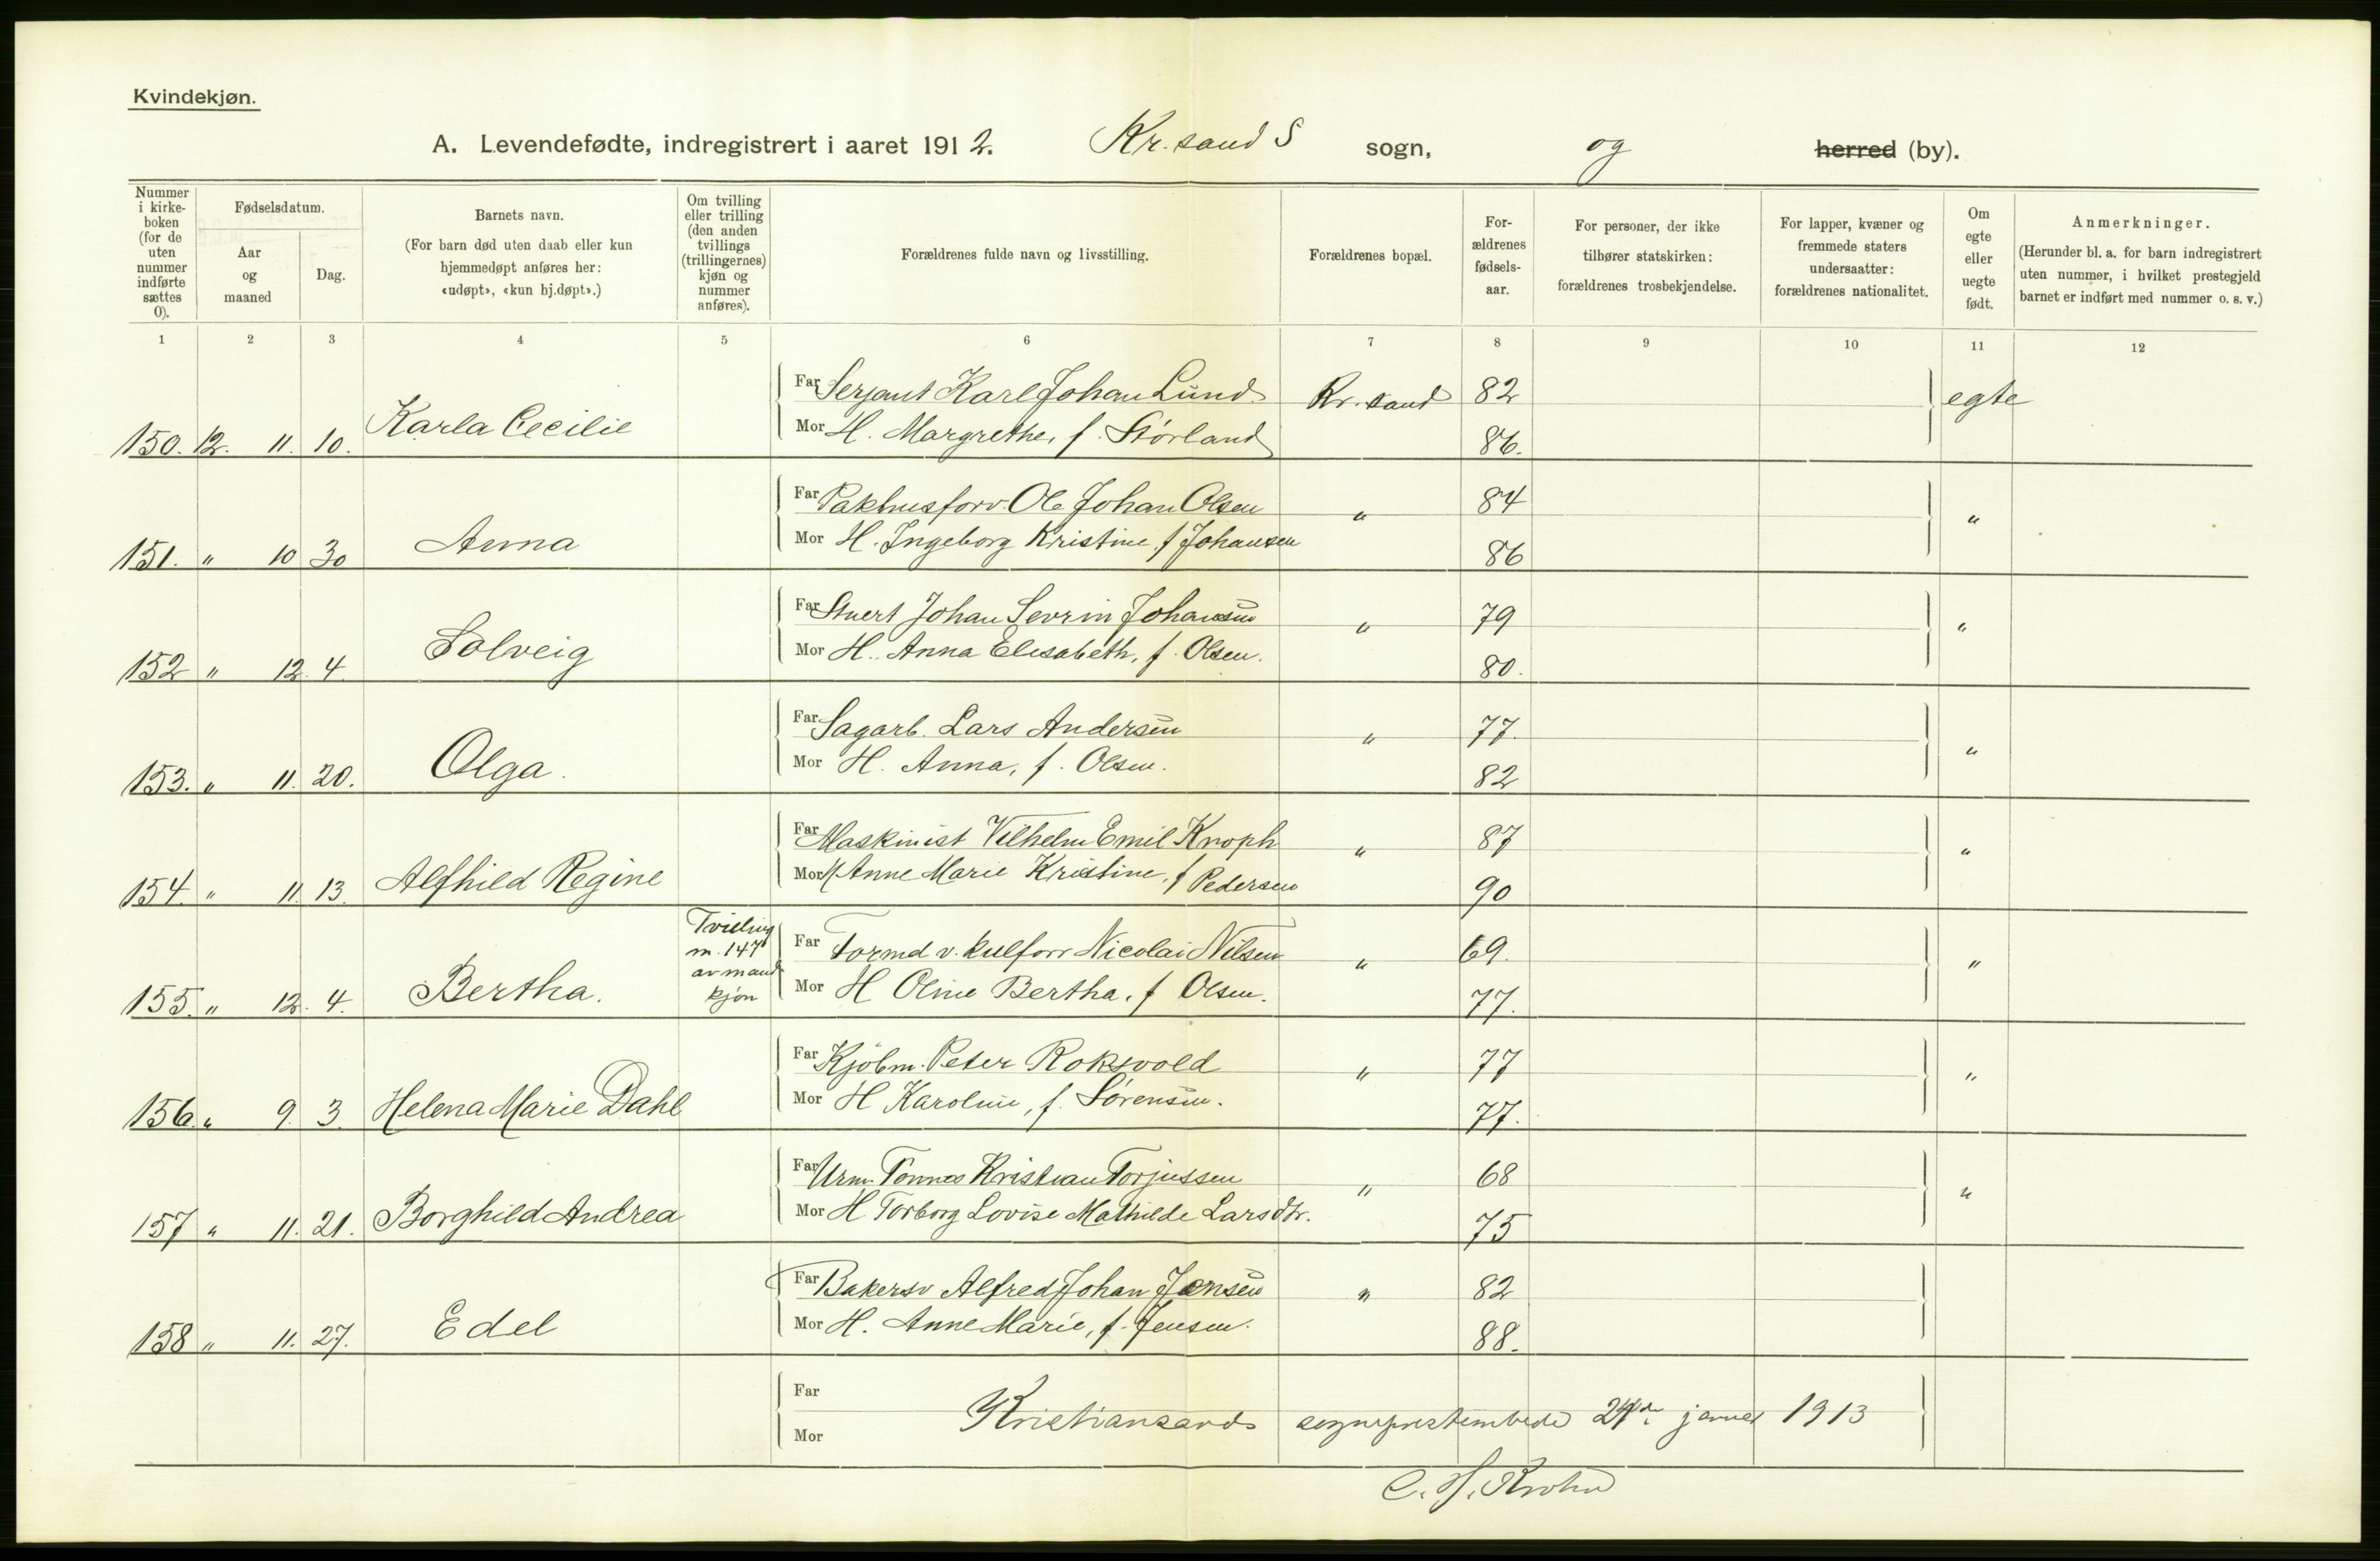 Kvindekjøn.
A. Levendefødte, indregistrert i aaret 1912. Kr.sand S sogn, og herred (by).
Nummer i kirke-boken (for de uten nummer indførte sættes 0).
Fødselsdatum.
Aar og maaned
Dag.
Barnets navn.
(For barn død uten daab eller kun hjemmedøpt anføres her: «udøpt», «kun hj.døpt».)
Om tvilling eller trilling (den anden tvillings (trillingernes) kjøn og nummer anføres).
Forældrenes fulde navn og livsstilling.
Forældrenes bopæl.
For-ældrenes fødsels-aar.
For personer, der ikke tilhører statskirken: forældrenes trosbekjendelse.
For lapper, kvæner og fremmede staters undersaatter: forældrenes nationalitet.
Om egte eller uegte født.
Anmerkninger.
(Herunder bl. a. for barn indregistrert uten nummer, i hvilket prestegjeld barnet er indført med nummer o. s. v.)
1 2 3 4 5 6 7 8 9 10 11 12
Far Serjant Karl Johan Lund Kr.sand 82 egte
150. 12. 11. 10. Karla Cecilie Mor H. Margrethe, f. Störland 86.
Far Pakhusforv. Ole Johan Olsen " 84 "
151. " 10 30 Anna Mor H. Ingeborg Kristine, f Johansen 86
Far Stuert Johan Sevrin Johansen " 79 "
152 " 12. 4. Solveig Mor H. Anna Elisabeth, f. Olsen. 80.
Far Sagarb. Lars Andersen " 77. "
153. " 11. 20. Olga. Mor H. Anna, f. Olsen. 82
Far Maskinist Vilhelm Emil Knoph " 87 "
154. " 11. 13. Alfhild Regine Mor H Anne Marie Kristine, f Pedersen 90
Tvilling m. 147 av mand kjøn
Far Formd v. kulforr Nicolai Nilsen " 69. "
155. " 12. 4. Bertha. Mor H Oline Bertha, f Olsen. 77.
Far Kjöbm. Peter Roksvold " 77 "
156. " 9. 3. Helena Marie Dahl Mor H Karoline, f. Sörensen. 77.
Far Urm. Tönnes Kristian Torjussen " 68 "
157 " 11. 21. Borghild Andrea Mor H Torborg Lovise Mathilde Larsdtr. 75
Far Bakersv Alfred Johan Jensen " 82
158 " 11. 27. Edel Mor H. Anne Marie, f. Jensen. 88.
Far
Kristiansands sogneprestembede 24de januar 1913
Mor
C. H. Krohn